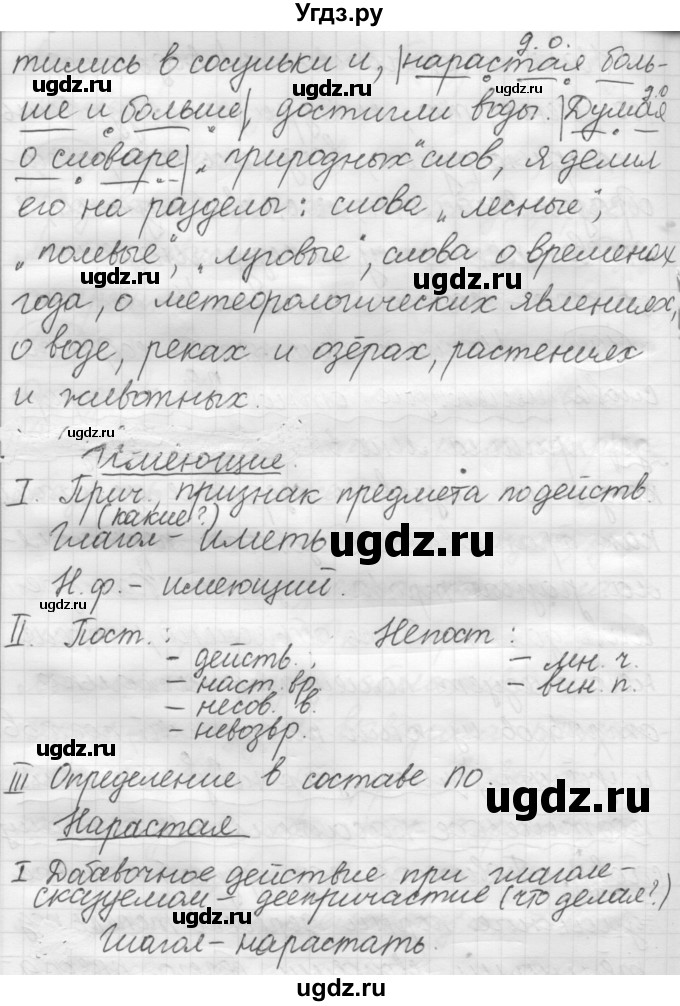 Угдз.ру
д.о.
тились в сосульки и, |нарастая боль-
ше и больше|, достигли воды. |Думая
д.о
о словаре| „природных“ слов, я делил
его на разделы: слова „лесные“,
„полевые“, „луговые“, слова о временах
года, о метеорологических явлениях,
о воде, реках и озёрах, растениях
и животных.
Имеющие.
I. Прич., признак предмета по действ.
(какие?)
Глагол - иметь
Н.ф. - имеющий.
II. Пост.: Непост:
- действ., - мн. ч.
- наст. вр. - вин. п.
- несов. в.
- невозвр.
III Определение в составе ПО.
Нарастая
I Добавочное действие при глаголе-
сказуемом - деепричастие (что делая?)
Глагол - нарастать.
ugdz.ru
ugdz.ru
ugdz.ru
ugdz.ru
ugdz.ru
ugdz.ru
ugdz.ru
ugdz.ru
ugdz.ru
ugdz.ru
ugdz.ru
ugdz.ru
ugdz.ru
ugdz.ru